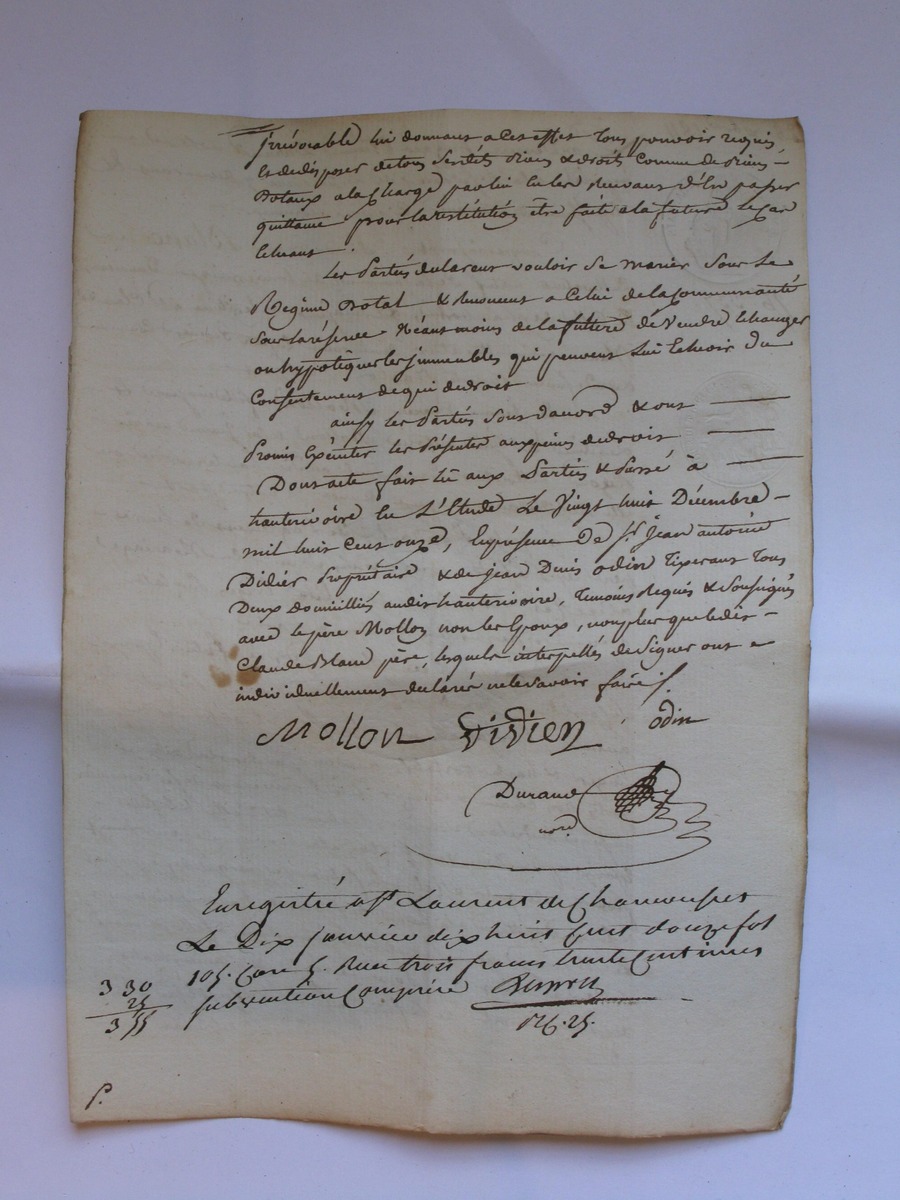 jrrévocable lui donnant a Cet effet tous pouvoir requis
et de disposer de tous Ses dits Biens & droits Comme de Biens
Dotaux a la Charge par lui En les Recevant d'En passer
quittance pour la restitution Être faite a la future le Cas
Echeant.
Les Parties declarent vouloir Se marier Sous Le
Regime Dotal & Renoncent a Celui de la Communauté
Sous la réserve Néant moins de la future de Vendre Echanger
ou hypotéquer les jmmeubles qui peuvent Lui Echeoir du
Consentement de qui de droit
ainsy les Parties Sont d'accord & ont
Promis Exécuter les Présentes aux peines de droit
Dont acte fait lu aux Parties & Passé à
hauterivoire En L'Etude Le Vingt huit Décembre
mil huit Cent onze, En présence De Sr. Jean antoine
Didier Propriétaire & de Jean Denis odin Tisserant Tous
Deux domiciliés audit hauterivoire, Temoins Requis & Soussignés
avec le père Mollon non les Epoux, non plus que ledit
Claude Blanc père, lesquels interpellés de Signer ont
individuellement declaré ne le Savoir faire /.
Mollon Didier odin
Durand
nore
Enregistré a St Laurent de Chamousset
Le Dix janvier dix huit Cent douze fol
105. Case 5. Reçu trois francs trente Centimes
3 30
subvention Comprise
25
3 55
1 R. 25.
P.